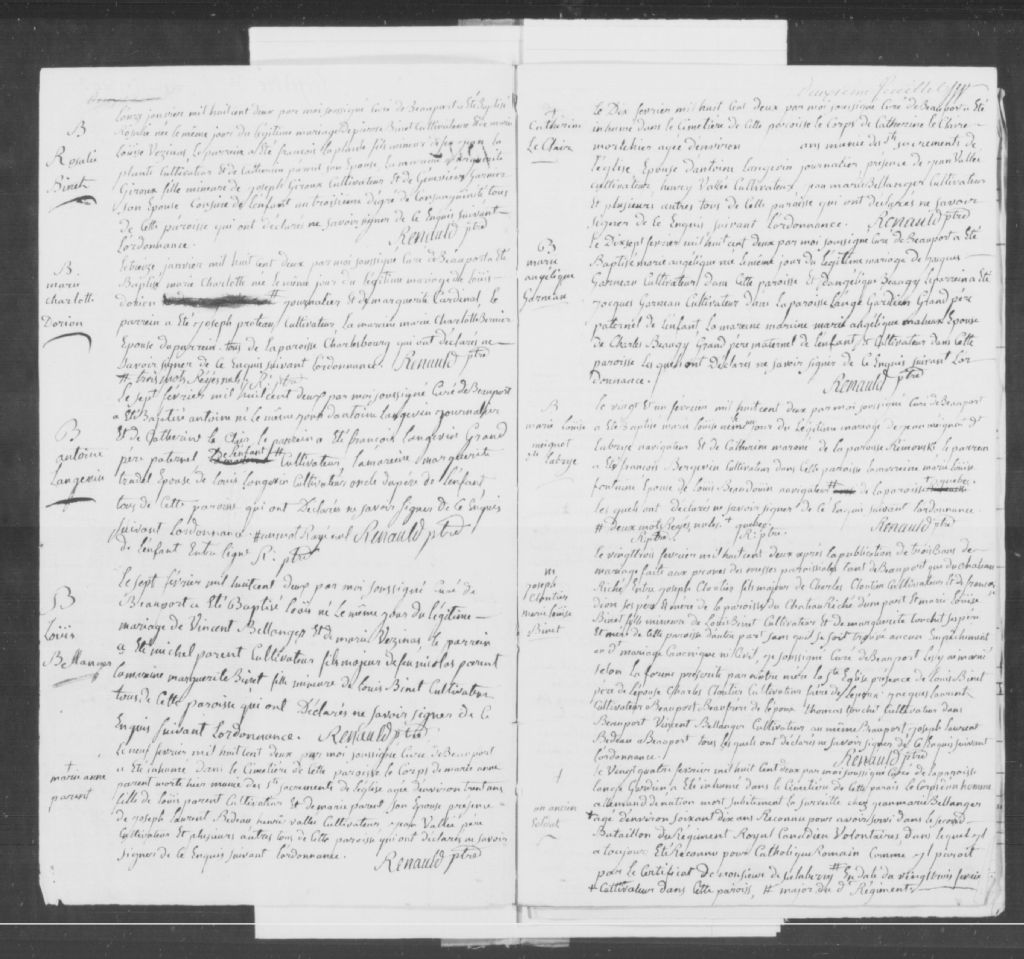 B
Rosalie
Binet
Lonze janvier mil huit cent deux par moi soussigné Curé de Beauport a Eté Baptisé
Rosalie née le même jour du légitime mariage de pierre Binet Cultivateur Et de marie
Louise Vezinas, le parrein a Eté françois laplante fils mineur de jean la
plante Cultivateur Et de Catherine parent son Epouse la mareine marguerite
Giroux fille mineure de joseph Giroux Cultivateur Et de Génevieve Garnier
son Epouse Cousine de lenfant au troisieme degré de Consanguinité tous
de Cette paroisse qui ont déclaré ne savoir signer de Ce Enquis suivant
lordonnance. Renauld ptre
B.
marie
charlotte
Dorion
le treize janvier mil huit cent deux par moi soussigné Curé de Beauport a Eté
Baptisé marie Charlotte née le même jour du légitime mariage de Louis
dorion # journalier Et de marguerite Cardinal, le
parrein a Eté joseph proteau Cultivateur, la mareine marie Charlotte Bernier
Epouse du parrein tous de la paroisse Charlesbourg qui ont déclarés ne
savoir signer de Ce Enquis suivant lordonnance. Renauld ptre
# trois mots Rayés nuls R. ptre
B
antoine
Langevin
le sept février mil huit cent deux par moi soussigné Curé de Beauport
a Eté Baptisé antoine né le même jour dantoine Langevin journalier
Et de Catherine le Clair le parrein a Eté françois Langevin Grand
pere paternel de lenfant # Cultivateur la mareine marguerite
tradel Epouse de Louis Langevin Cultivateur oncle du pere de lenfant
tous de Cette paroisse qui ont Déclaré ne savoir signer de Ce Enquis
suivant lordonnance. Renauld ptre
de lenfant Entre ligne R. ptre
B
Loüis
Bellanger
le sept février mil huit cent deux par moi soussigné Curé de
Beauport a Eté Baptisé Loüis né le même jour du légitime
mariage de Vincent Bellanger Et de marie Vezinas, le parrein
a Eté michel parent Cultivateur fils majeur de feu nicolas parent
la mareine marguerite Binet fille mineure de Louis Binet Cultivateur
tous de Cette paroisse qui ont Déclarés ne savoir signer de Ce
Enquis suivant lordonnance. Renauld ptre
†
marie anne
parent
le neuf février mil huit cent deux par moi soussigné Curé de Beauport
a Eté inhumé dans le Cimetiére de Cette paroisse le Corps de marie anne
parent morte hier munie des sts sacrements de léglise agée denviron trente ans
fille de Louis parent Cultivateur Et de marie parent son Epouse presence
de joseph Laurent Bedeau henrie vallée Cultivateur jean Vallée pere
Cultivateur Et plusieurs autres tous de Cette paroisse qui ont déclarés ne savoir
signer de Ce Enquis suivant lordonnance.
Renauld ptre
Deuxieme feuillet
†
Catherine
Le Clair
le Dix février mil huit cent deux par moi soussigné Curé de Beauport a Eté
inhumé dans le Cimetiére de Cette paroisse le Corps de Catherine le Claire
morte hier agée denviron ans munie des sts sacrements de
léglise Epouse dantoine Langevin journalier presence de jean Vallée
cultivateur henry Vallée Cultivateur, jean marie Bellanger Cultivateur
Et plusieurs autres tous de Cette paroisse qui ont declarés ne savoir
signer de Ce Enquis suivant lordonnance. Renauld ptre
B
marie
angélique
Garneau
le Dix sept fevrier mil huit cent deux par moi soussigné Curé de Beauport a Eté
Baptisé marie angélique née le même jour du légitime mariage de jacques
Garneau Cultivateur dans Cette paroisse Et dangélique Beaugy le parrein a Eté
jacques Garneau Cultivateur dans la paroisse Lange Gardien Grand pere
paternel de lenfant, la mareine marie angélique Epouse
de Charles Beaugy Grand pere maternel de lenfant, Et Cultivateur dans Cette
paroisse les quels ont Déclarés ne savoir signer de Ce Enquis suivant lor
donnance. Renauld ptre
B
marie louise
mignot
dte labrye
le vingt Et un fevrier mil huit cent deux par moi soussigné Curé de Beauport
a Eté Baptisé marie louise née le même jour du légitime mariage de jean mignot dt
labrye navigateur Et de Catherine de la paroisse Rimouski le parrein
a Eté françois Bergevin Cultivateur dans Cette paroisse la mareine marie louise
fontaine Epouse de Louis Beaudouin navigateur # de la paroisse quebec
les quels ont déclarés ne savoir signer de Ce Enquis suivant lordonnance.
# Deux mots Rayés nuls quebec Renauld ptre
R. ptre R. ptre
m
joseph
Cloutier
marie loüise
Binet
le vingt trois fevrier mil huit cent deux après la publication de trois Bans de
mariage faite aux prones des messes paroissiales tant de Beauport que du chateau
Riché Entre joseph Cloutier fils majeur de Charles Cloutier Cultivateur Et de françoise
dion ses pere Et mere de la paroisse du Chateau Riché dune part Et marie Loüise
Binet fille mineure de Louis Binet Cultivateur Et de marguerite touchet ses pere
Et mere de Cette paroisse dautre part sans quil se soit trouvé aucun Empêchement
au dt mariage Canonique ni Civil, je soussigné Curé de Beauport les ai marié
selon la forme prescrite par nôtre mere la ste Eglise presence de Louis Binet
pere de lepouse Charles Cloutier Cultivateur frére de lépoux jacques Laurent
Cultivateur a Beauport Beaufrere de lépoux thomas touché Cultivateur dans
Beauport Vincent Bellanger Cultivateur au même Beauport joseph Laurent
Bedeau a Beauport tous les quels ont déclarés ne savoir signer de Ce Enquis suivant
lordonnance. Renauld ptre
†
un ancien
soldat
le Vingt quatre fevrier mil huit cent deux par moi soussigné Curé de la paroisse
Lange Gardien, a Eté inhumé dans le Cimetiére de Cette paroisse le Corps dun homme
allemand de nation mort subitement la surveille chez jean marie Bellanger
† agé denviron soixant dix ans Reconnu pour avoir servi dans le second
Bataillon du Régiment Royal Canadien Volontaires, dans lequel il
a toujours Eté Reconnu pour Catholique Romain Comme il paroit
par le Certificat de monsieur de salaberry # En date du vingt trois fevrier
† Cultivateur dans Cette paroisse, # major du dt Régiment